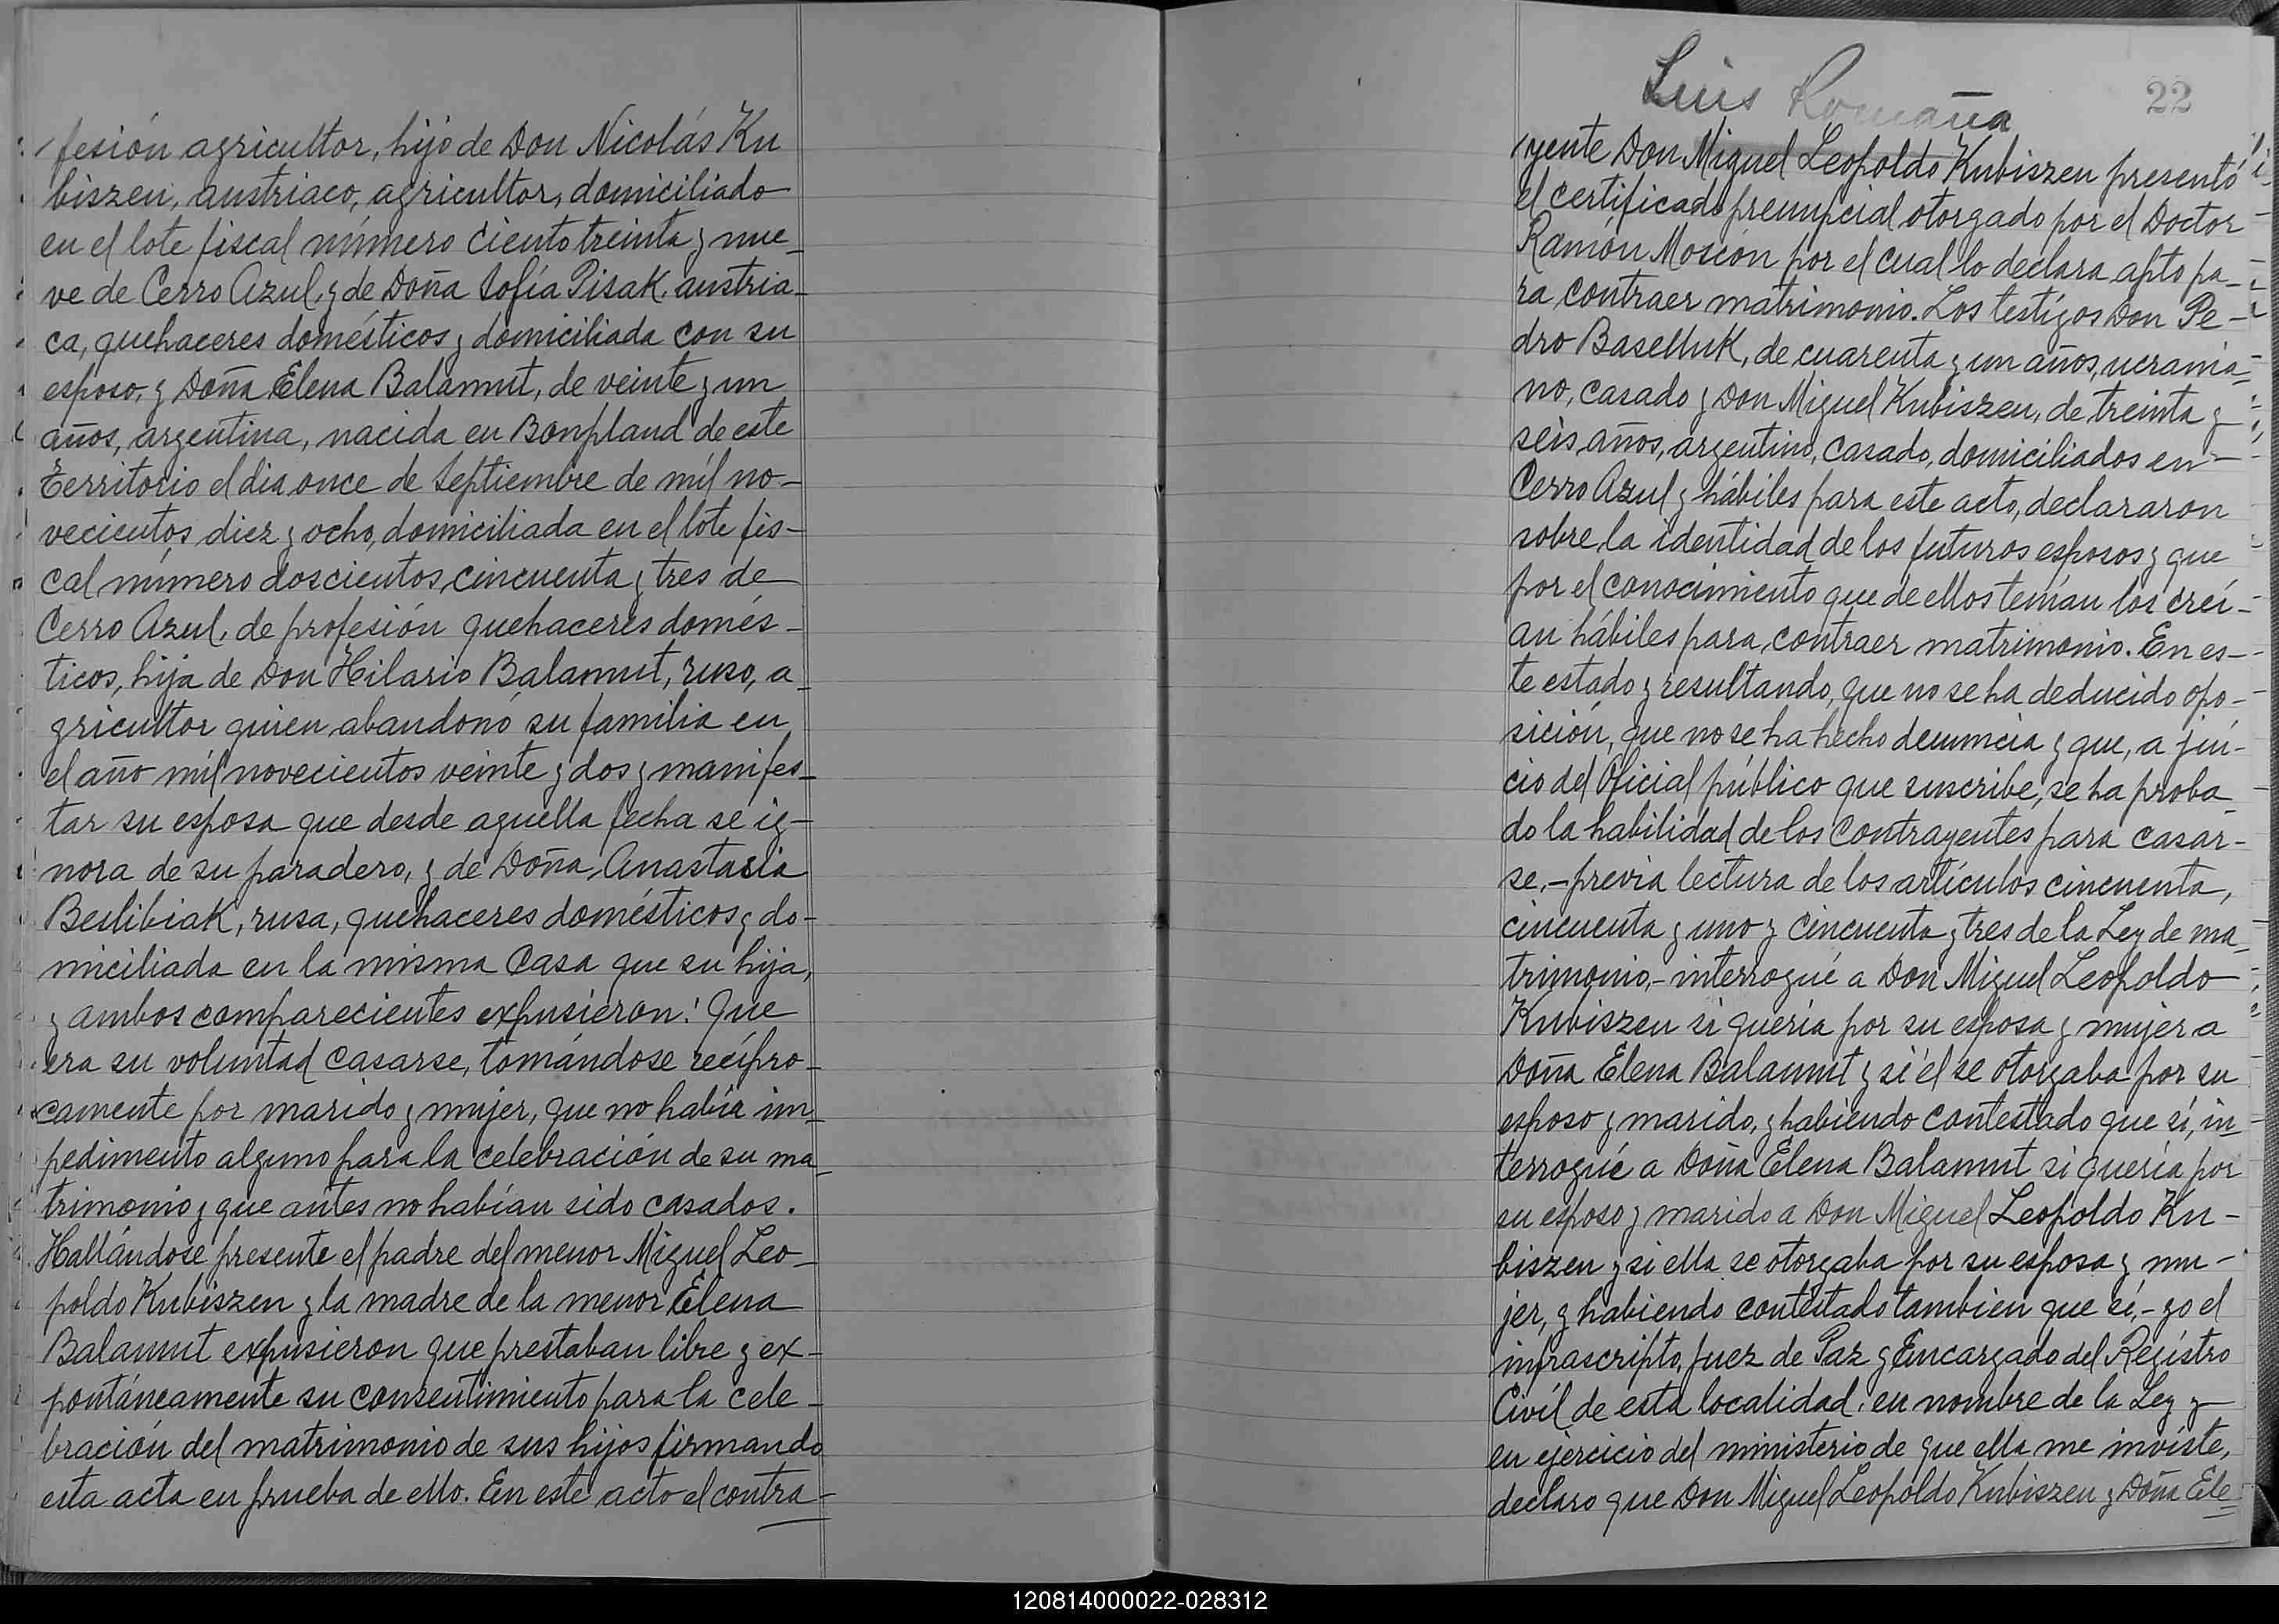 fesión agricultor, hijo de Don Nicolás Ku
biszen, austriaco, agricultor, domiciliado
en el lote fiscal número ciento treinta y nue_
ve de Cerro Azul, y de Doña Sofía Pisak, austria_
ca, quehaceres domésticos y domiciliada con su
esposo, y Doña Elena Balamut, de veinte y un
años, argentina, nacida en Bonpland de este
Territorio el dia once de Septiembre de mil no-
vecientos diez y ocho, domiciliada en el lote fis-
cal número doscientos cincuenta y tres de
Cerro Azul, de profesión quehaceres domés-
ticos, hija de Don Hilario Balamut, ruso, a_
gricultor quien abandonó su familia en
el año mil novecientos veinte y dos y manifes_
tar su esposa que desde aquella fecha se ig-
nora de su paradero, y de Doña Anastasia
Beslibiak, rusa, quehaceres domésticos y do-
miciliada en la misma casa que su hija,
y ambos comparecientes expusieron: Que
era su voluntad casarse, tomándose recípro-
camente por marido y mujer, que no había im_
pedimento alguno para la celebración de su ma_
trimonio y que antes no habían sido casados.
Hallándose presente el padre del menor Miguel Leo_
poldo Kubiszen y la madre de la menor Elena
Balamut expusieron que prestaban libre y ex-
pontáneamente su consentimiento para la cele_
bración del matrimonio de sus hijos firmando
esta acta en prueba de ello. En este acto el contra-
Luis Romaña
22
yente Don Miguel Leopoldo Kubiszen presentó
el certificado prenupcial otorgado por el Doctor
Ramón Moscón por el cual lo declara apto pa_
ra contraer matrimonio. Los testigos Don Pe-
dro Baselluk, de cuarenta y un años, ucrania_
no, casado y Don Miguel Kubiszen, de treinta y
seis años, argentino, casado, domiciliados en
Cerro Azul y hábiles para este acto, declararon
sobre la identidad de los futuros esposos y que
por el conocimiento que de ellos tenían los creí-
an hábiles para contraer matrimonio. En es-
te estado y resultando, que no se ha deducido opo-
sición, que no se ha hecho denuncia y que, a jui-
cio del Oficial público que suscribe, se ha proba
do la habilidad de los contrayentes para casar-
se,- previa lectura de los artículos cincuenta,
cincuenta y uno y cincuenta y tres de la Ley de ma_
trimonio,- interrogué a Don Miguel Leopoldo
Kubiszen si quería por su esposa y mujer a
Doña Elena Balamut y si él se otorgaba por su
esposo y marido, y habiendo contestado que sí, in_
terrogué a Doña Elena Balamut si quería por
su esposo y marido a Don Miguel Leopoldo Ku-
biszen y si ella se otorgaba por su esposa y mu-
jer, y habiendo contestado tambien que sí,- yo el
infrascripto, Juez de Paz y Encargado del Registro
Civil de esta localidad, en nombre de la Ley y
en ejercicio del ministerio de que ella me inviste,
declaro que Don Miguel Leopoldo Kubiszen y Doña Ele
120814000022-028312